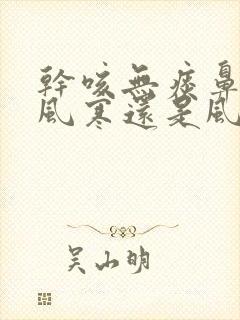 幹咳無痰鼻
風寒還是風
吳山明